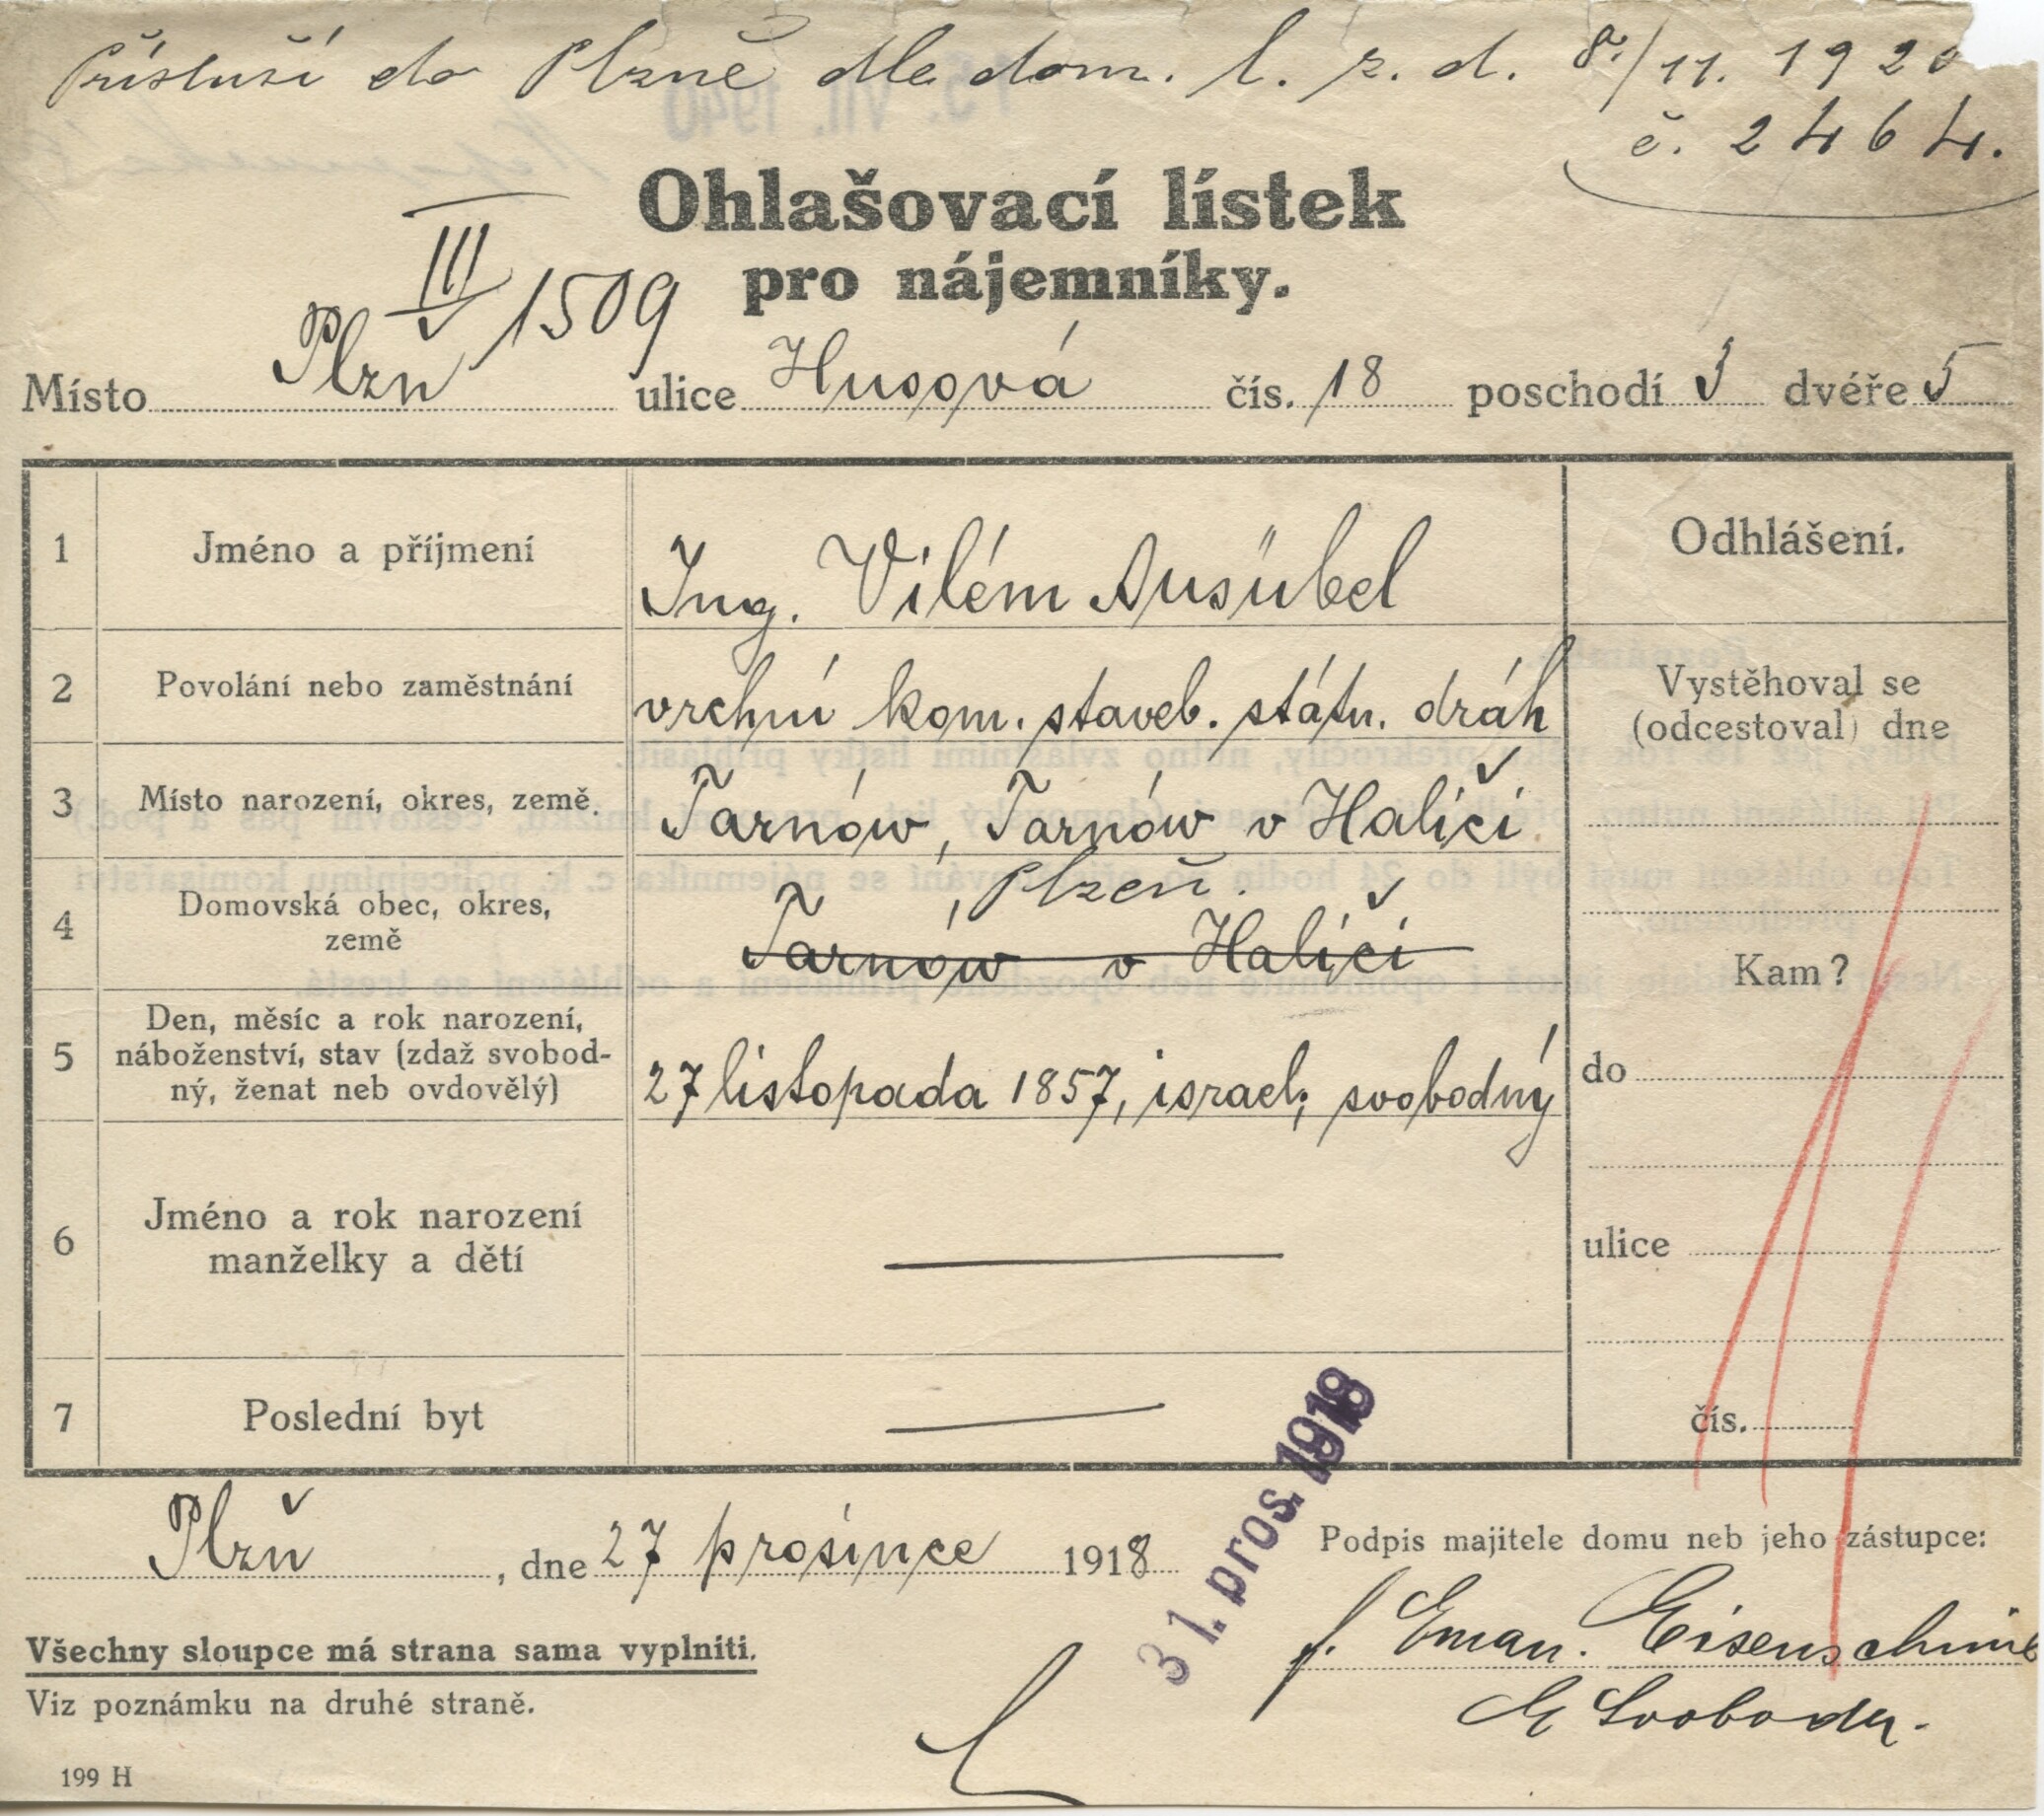 Přísluší do Plzně dle dom. l. z. d. 8./11. 1920
č. 2464.
Ohlašovací lístek
pro nájemníky.
III
1509
Místo Plzň ulice Husová čís. 18 poschodí 3 dvéře 5
1 Jméno a příjmení Ing. Vilém Ausübel
Odhlášení.
2 Povolání nebo zaměstnání vrchní kom. staveb. státn. dráh
Vystěhoval se
(odcestoval) dne
3 Místo narození, okres, země. Tarnów, Tarnów v Haliči
4 Domovská obec, okres,
země
Plzeň.
Tarnów v Haliči
Kam?
5 Den, měsíc a rok narození,
náboženství, stav (zdaž svobod-
ný, ženat neb ovdovělý)
27 listopada 1857, israel; svobodný
do
6 Jméno a rok narození
manželky a dětí
ulice
7 Poslední byt
čís.
31. pros. 1918
Plzň, dne 27 prosince 1918
Podpis majitele domu neb jeho zástupce:
Eman. Eisenschiml
Svoboda.
Všechny sloupce má strana sama vyplniti.
Viz poznámku na druhé straně.
199 H